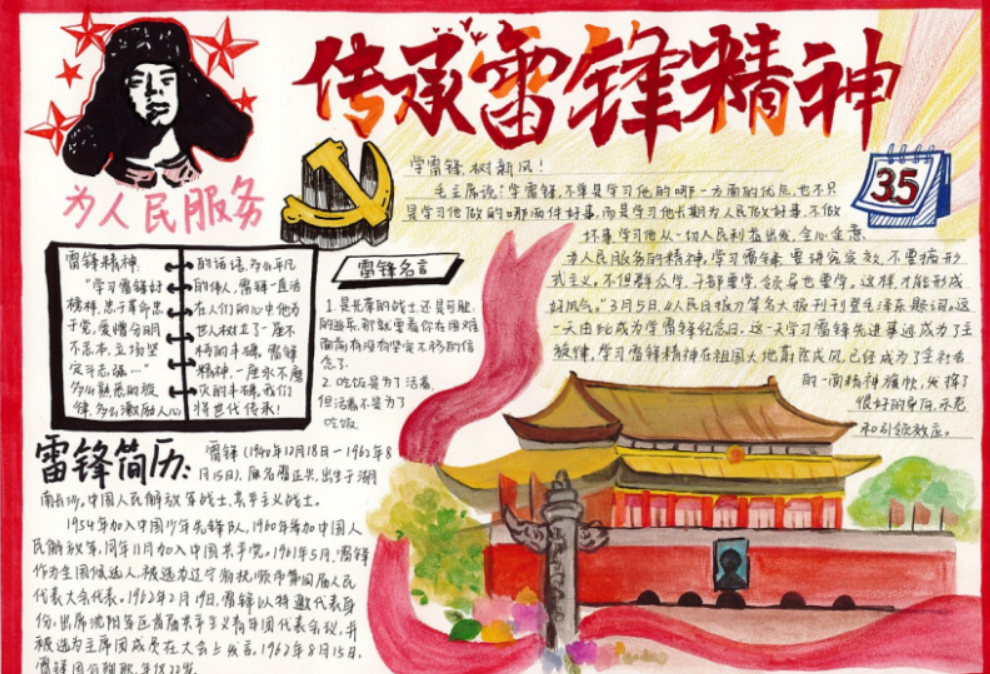 传承雷锋精神
为人民服务
35
学雷锋,树新风!
毛主席说:学雷锋,不单是学习他的哪一方面的优点,也不只
是学习他做的哪两件好事,而是学习他长期为人民做好事,不做
坏事,学习他从一切人民利益出发,全心全意、
为人民服务的精神,学习雷锋要讲究实效,不要搞形
式主义,不但群众学,干部要学,领导也要学,这样才能形成
好风气。"3月5日《人民日报》等各大报刊刊登毛泽东题词。这
一天由此成为学雷锋纪念日,这一天学习雷锋先进事迹成为了主
旋律,学习雷锋精神在祖国大地蔚然成风,已经成为了全社会
的一面精神旗帜,发挥了
很好的导向,示范
和引领效应。
雷锋精神:
"学习雷锋好
榜样,忠于革命忠
于党,爱憎分明
不忘本,立场坚
定斗志强…"
多么熟悉的旋
律,多么激励人心
的话语,为何平凡
的伟人,雷锋一直活
在人们的心中他为
世人树立了一座不
朽的丰碑,雷锋
精神,一座永不磨
灭的丰碑,我们
将世代传承!
雷锋名言
1.是光荣的战士还是可耻
的逃兵,那就要看你在困难
面前有没有坚定不移的信
念了.
2.吃饭是为了活着,
但活着不是为了
吃饭
雷锋简历:
雷锋(1940年12月18日—1962年8
月15日),原名雷正兴,出生于湖
南长沙,中国人民解放军战士,共产主义战士。
1954年加入中国少年先锋队,1960年参加中国人
民解放军,同年11月加入中国共产党。1961年5月,雷锋
作为全国候选人,被选为辽宁省抚顺市第四届人民
代表大会代表。1962年2月19日,雷锋以特邀代表身
份,出席沈阳军区首届共产主义青年团代表会议,并
被选为主席团成员在大会上发言。1962年8月15日,
雷锋因公殉职,年仅22岁。